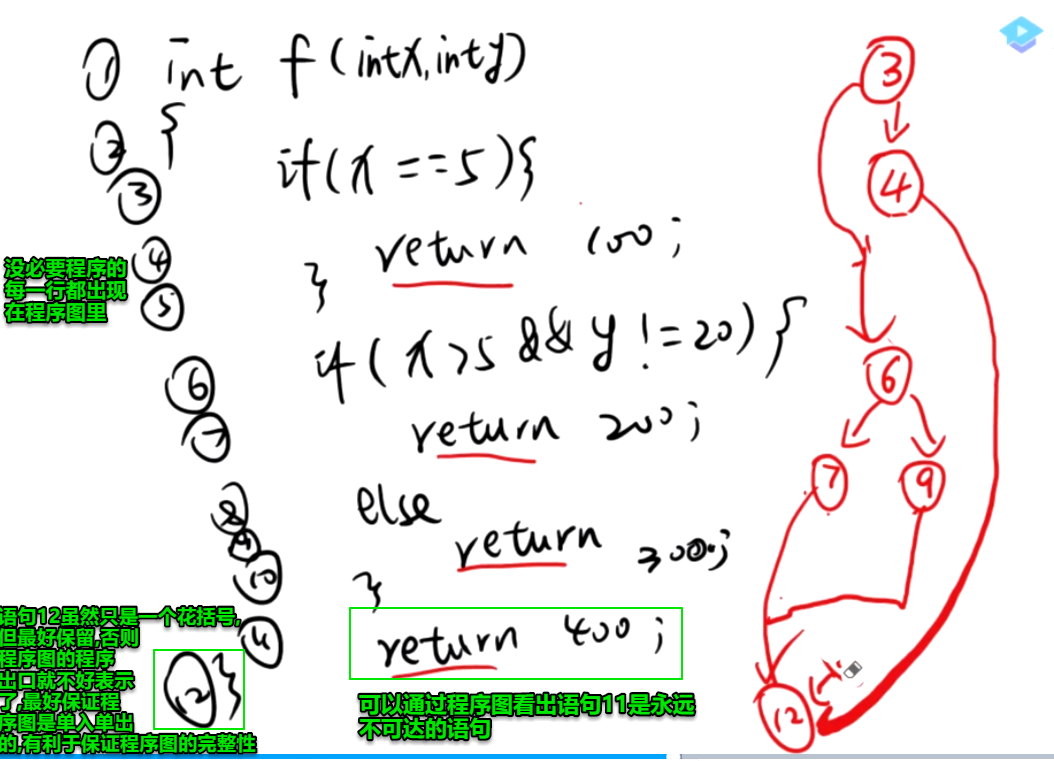 ① int f(int x, int y)
② {
③ if(x == 5){
④ return 100;
⑤ }
⑥ if(x>5 && y != 20){
⑦ return 200;
⑧ else
⑨ return 300;
⑩ }
return 400;
⑫ }
没必要程序的
每一行都出现
在程序图里
语句12虽然只是一个花括号,
但最好保留,否则
程序图的程序
出口就不好表示
了,最好保证程
序图是单入单出
的,有利于保证程序图的完整性
可以通过程序图看出语句11是永远
不可达的语句
③
④
⑥
⑦ ⑨
⑫